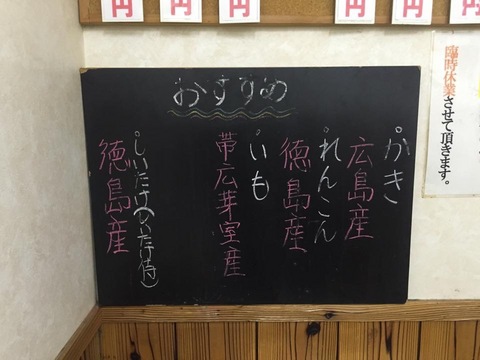 円
円
円
円
おすすめ
・かき
広島産
・れんこん
徳島産
・いも
帯広芽室産
・しいたけ(しいたけ侍)
徳島産
臨時休業させて頂きます。